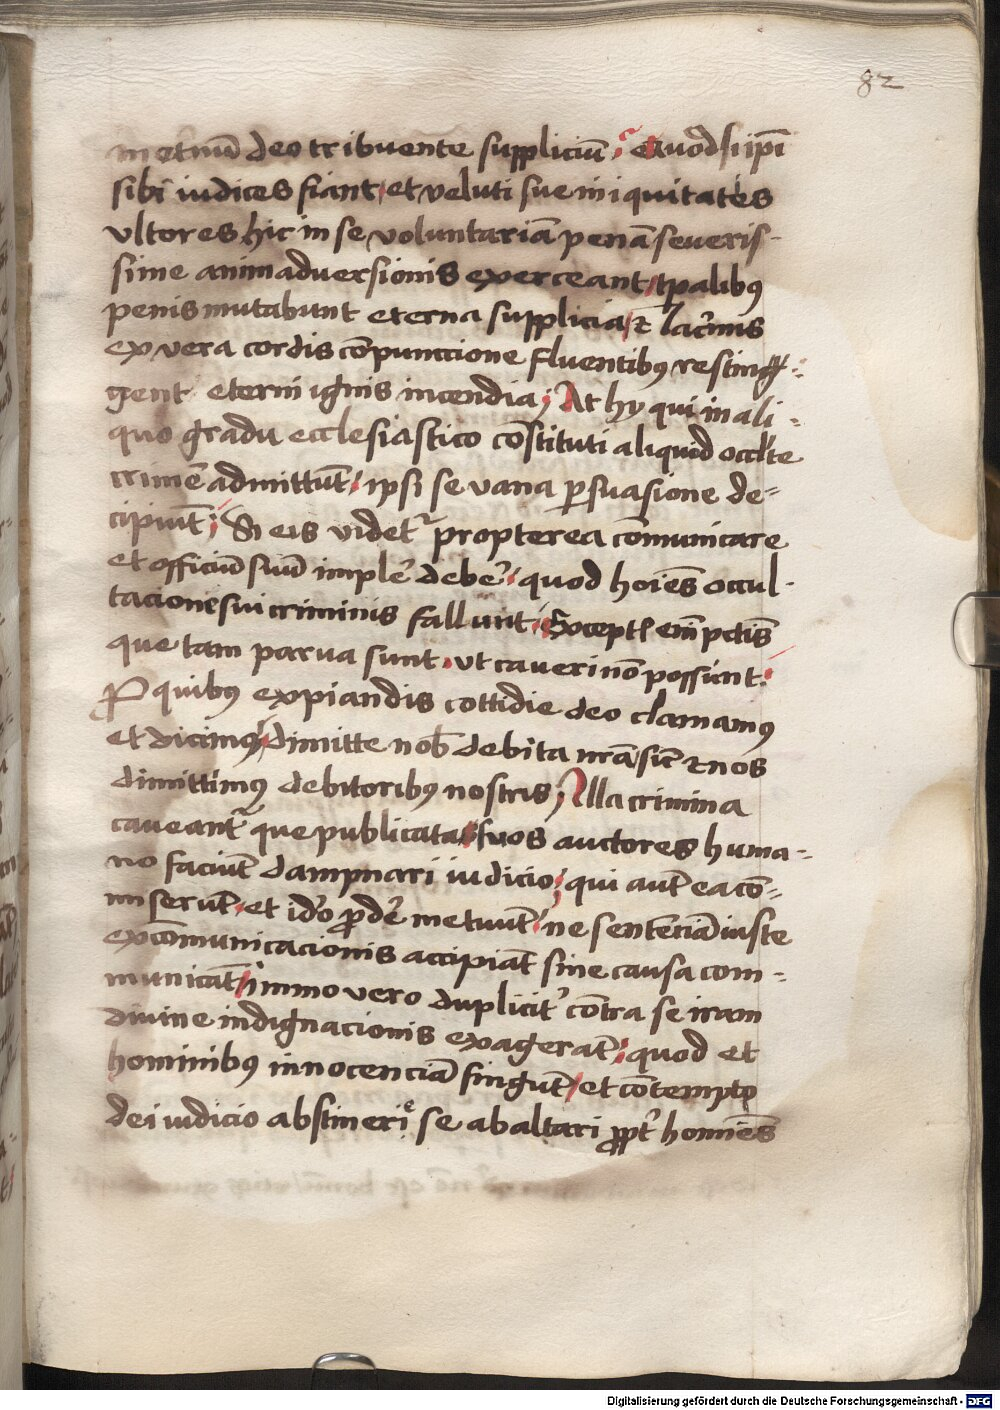 82
metuũ deo tribuente suppliciũ; Quodsi ip̃i
sibi iudices fiant, et veluti sue iniquitatis
vltores hic in se voluntariã penã seueris-
sime animaduersionis exerceant, tp̃alibus
penis mutabunt eterna supplicia, et lac̓mis
ex vera cordis cõpunccione fluentibus resting-
gent eterni ignis incendia; At hy qui in ali-
quo gradu ecclesiastico cõstituti aliquid occl̓te
crimẽ admittũt; ipsi se vana ꝑsuasione de-
cipiũt; Si eis videt᷑ propterea cõmunicare
et officiũ suũ imple̓ debe̓; quod hoiẽs occul-
tacione sui criminis fallunt; Except̓ em̃ pctĩs
que tam parua sunt. vt caueri nõ possunt.
P quibus expiandis cottidie deo clamamus
et dicimus, dimitte nob̓ debita nr̃a sic̃ et nos
dimittimus debitoribus nostris; Illa crimina
caueant᷑ que publicata suos auctores huma-
no faciũt dampnari iudicio; qui aut̃ ea cõ-
miserũt, et id̓o ꝓde̓ metuũt; ne sentenciã iuste
excõmunicacionis accipiãt sine causa com-
municãt; immo vero duplicit̓ cõtra se iram
diuine indignacionis exagerãt; quod et
hominibus innocenciã fingũt, et cõtempto
dei iudicio abstineri se ab altari ꝓpt̓ homiẽs
Digitalisierung gefördert durch die Deutsche Forschungsgemeinschaft - DFG